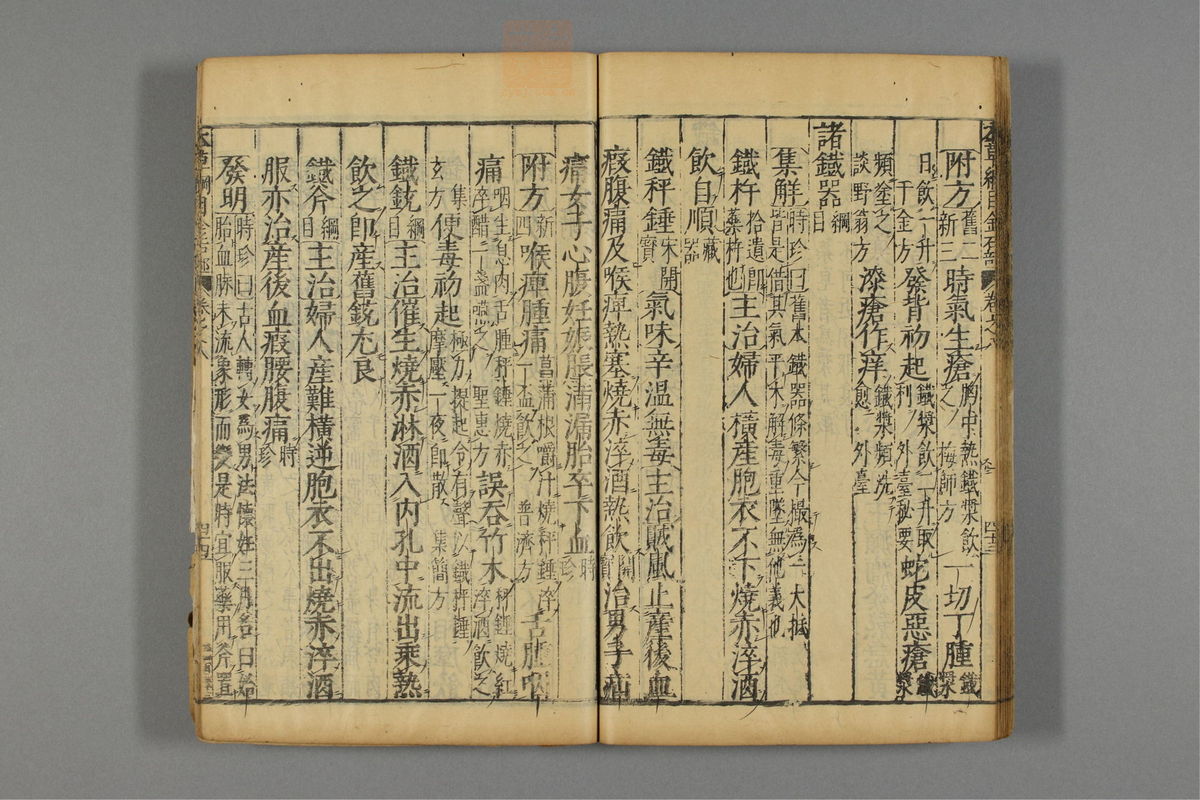 本草綱目金石部 卷之八
附方舊二新三時氣生瘡胸中熱鐵漿飲之 梅師方一切丁腫鐵漿
日飲一升 千金方發背初起鐵漿飲二升取利 外臺秘要蛇皮惡瘡鐵漿
頻塗之 談野翁方漆瘡作痒鐵漿頻洗愈 外臺
諸鐵器綱目
集解時珍曰舊本鐵器條繁今撮爲一大抵皆是借其氣平木解毒重墜無他義也
鐵杵拾遺即藥杵也主治婦人橫產胞衣不下燒赤淬酒
飲自順藏器
鐵秤錘宋開寶氣味辛溫無毒主治賊風止產後血
瘕腹痛及喉痺熱塞燒赤淬酒熱飲開寶治男子疝
癰女子心腹妊娠脹滿漏胎卒下血時珍
附方新四喉痺腫痛菖蒲根嚼汁燒秤錘淬一盃飲之 普濟方舌腫咽
痛咽生息肉舌腫秤錘燒赤淬醋一盞嚥之 聖惠方誤吞竹木秤錘燒紅淬酒飲之
玄方 集便毒初起極力提起令有聲以鐵秤錘摩壓一夜即散 集簡方
鐵銃綱目主治催生燒赤淋酒入內孔中流出乘熱
飲之即產舊銃尤良
鐵斧綱目主治婦人產難橫逆胞衣不出燒赤淬酒
服亦治產後血瘕腰腹痛時珍
發明時珍曰古人轉女爲男法懷妊三月名曰始胎血脉未流象形而變是時宜服藥用斧置
本草綱目金石部 卷之八